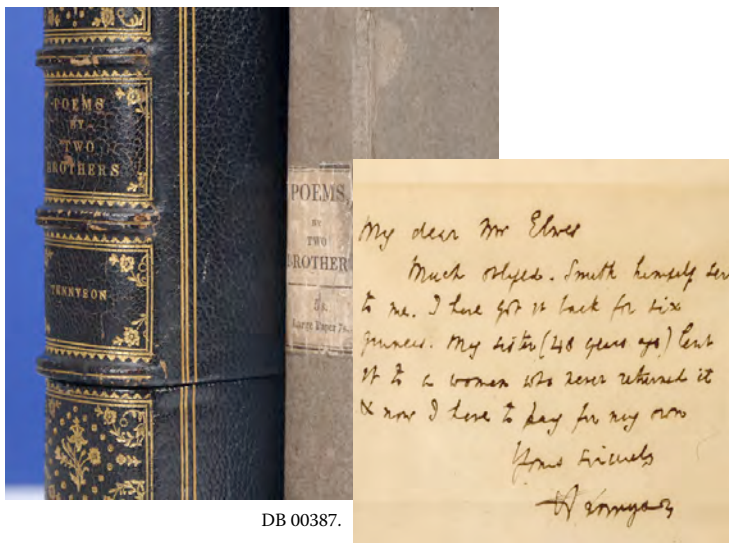 POEMS
BY
TWO
BROTHERS
TENNYSON
POEMS,
BY
TWO
BROTHER
5s.
Large Paper 7s.
My dear Mr Elwes
Much obliged. Smith himself
to me. I have got it back for six
guineas. My sister (48 years ago) lent
it to a woman who never returned it
& now I have to pay for my own
Yours sincerely
A Tennyson
DB 00387.